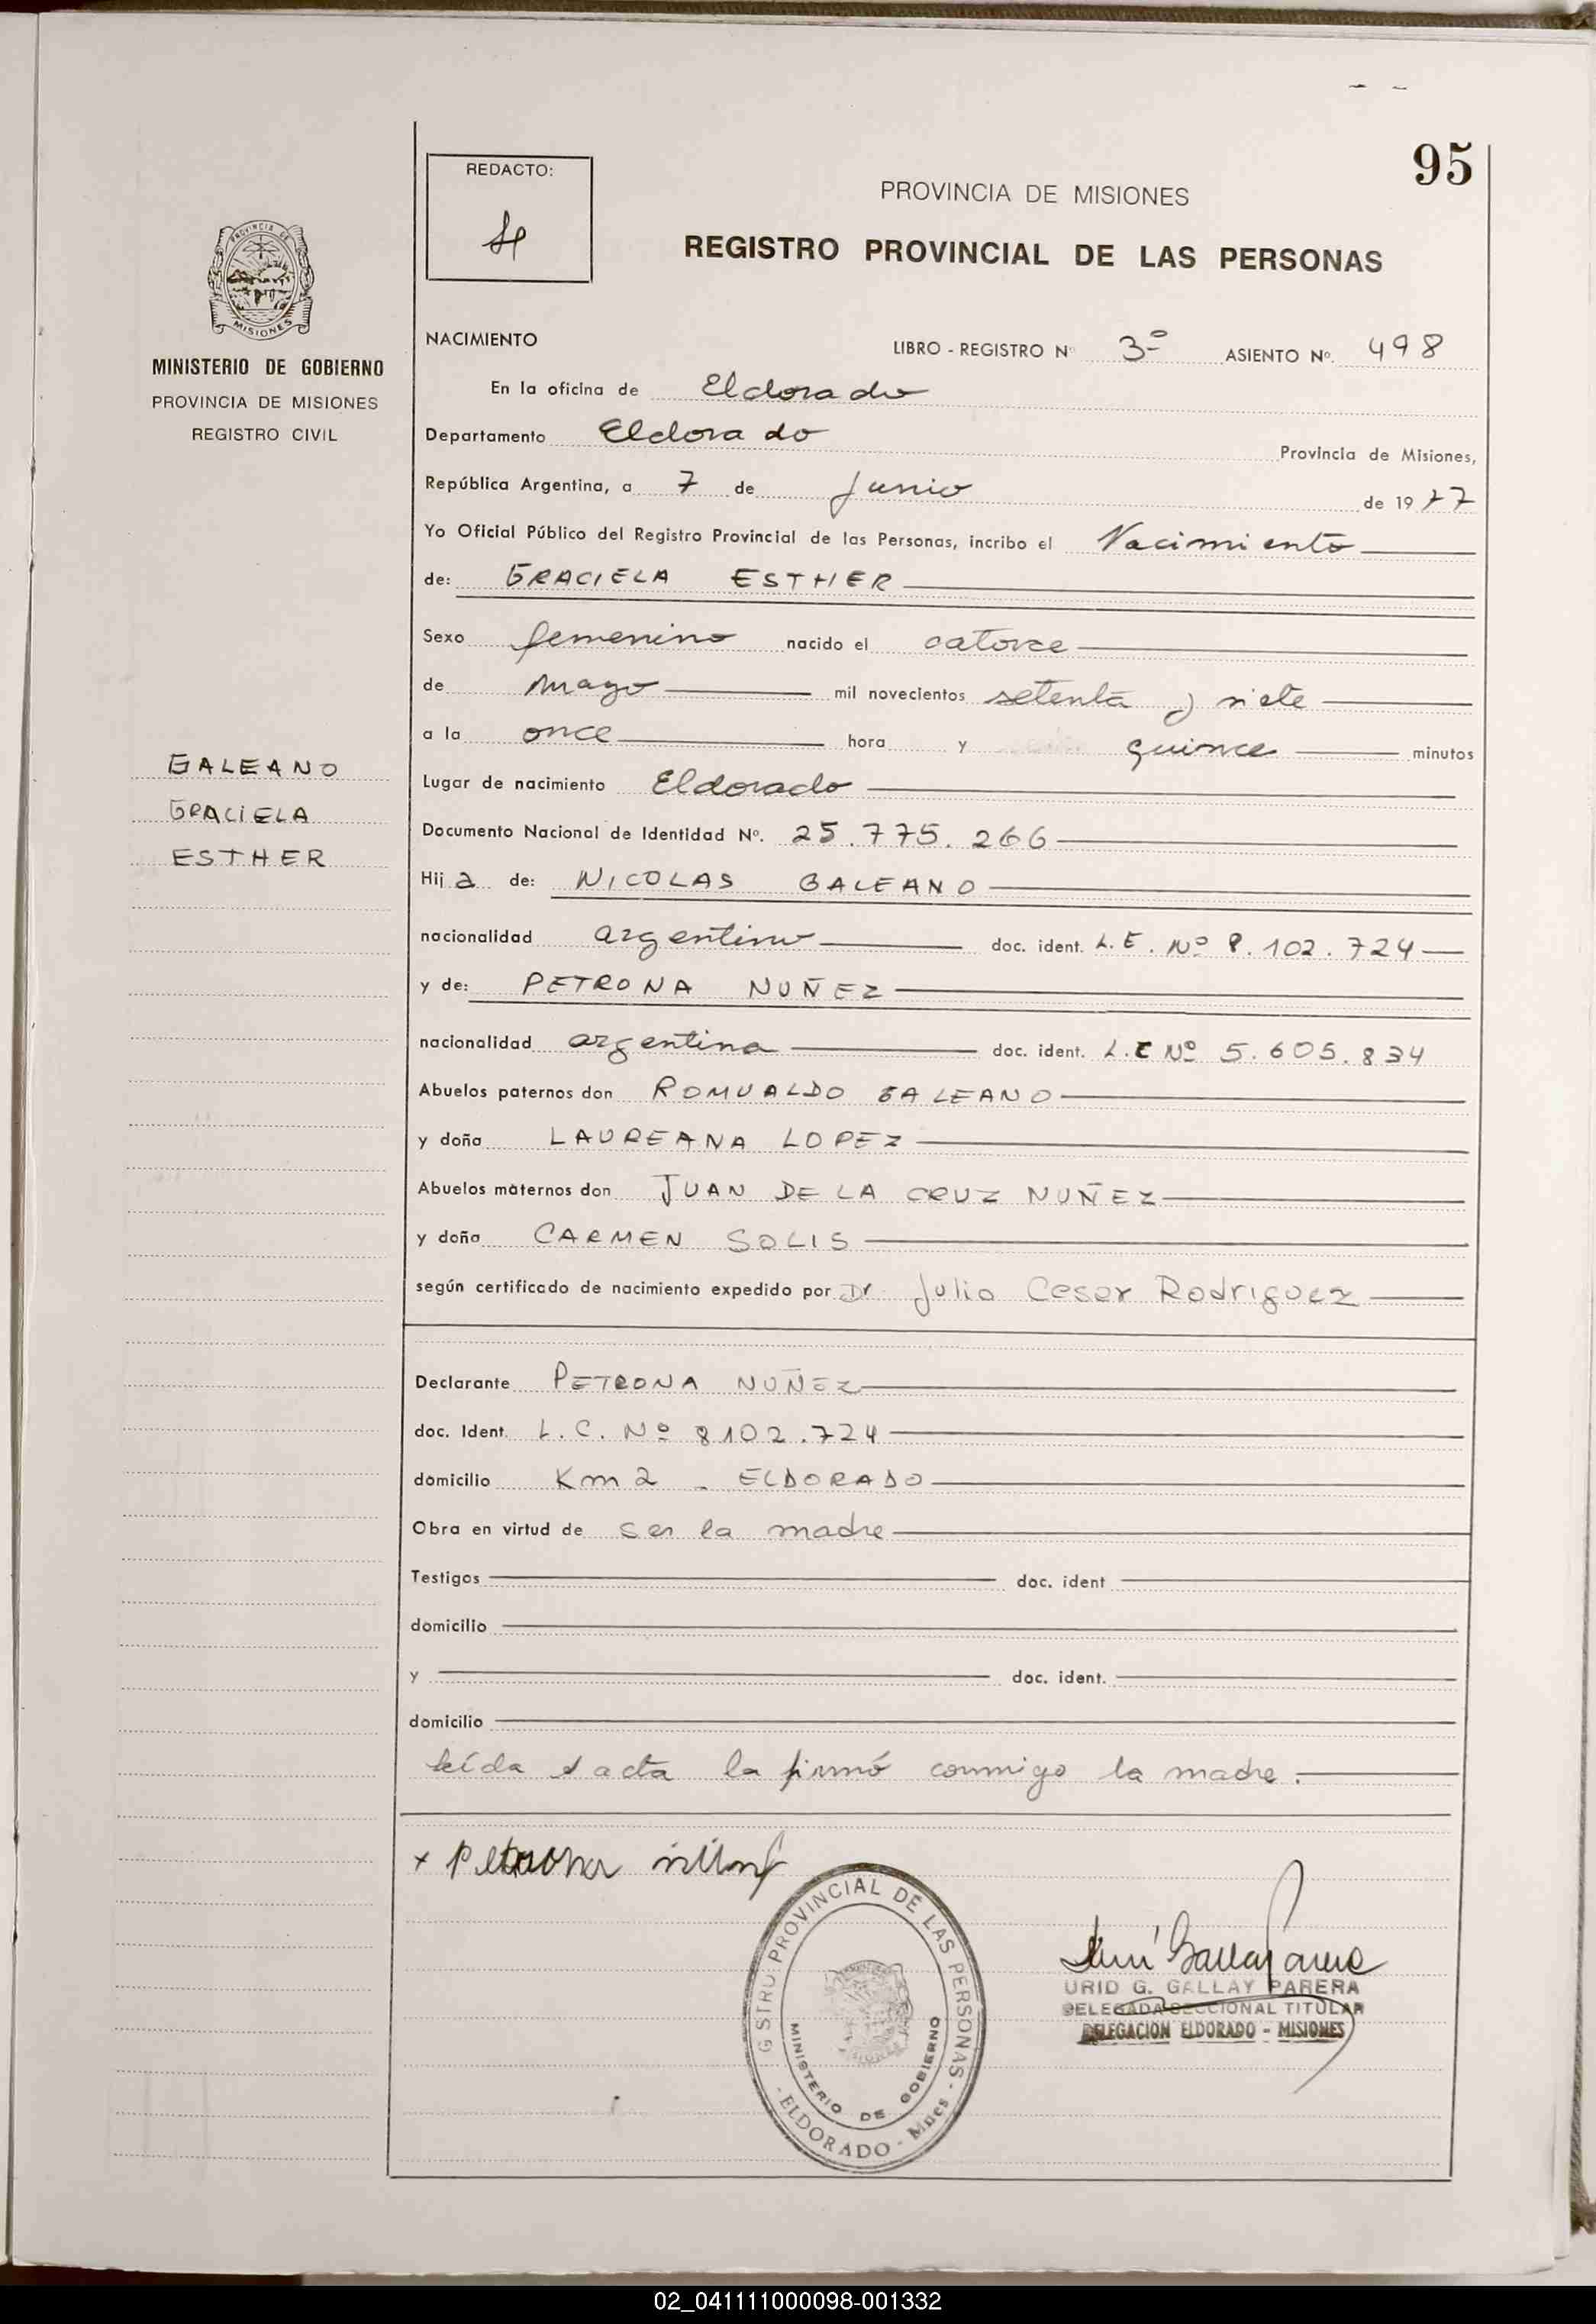 95
REDACTO:
PROVINCIA DE MISIONES
REGISTRO PROVINCIAL DE LAS PERSONAS
PROVINCIA DE
MISIONES
MINISTERIO DE GOBIERNO
PROVINCIA DE MISIONES
REGISTRO CIVIL
NACIMIENTO
LIBRO - REGISTRO Nº 3º ASIENTO Nº. 498
En la oficina de Eldorado
Departamento Eldorado Provincia de Misiones,
República Argentina, a 7 de Junio de 1977
Yo Oficial Público del Registro Provincial de las Personas, incribo el Nacimiento
de: GRACIELA ESTHER
Sexo femenino nacido el catorce
de mayo mil novecientos setenta y siete
a la once hora y quince minutos
GALEANO
GRACIELA
ESTHER
Lugar de nacimiento Eldorado
Documento Nacional de Identidad Nº. 25.775.266
Hija de: NICOLAS GALEANO
nacionalidad argentino doc. ident. L.E. Nº 8.102.724
y de: PETRONA NUÑEZ
nacionalidad argentina doc. ident. L.C Nº 5.605.834
Abuelos paternos don ROMUALDO GALEANO
y doña LAUREANA LOPEZ
Abuelos maternos don JUAN DE LA CRUZ NUÑEZ
y doña CARMEN SOLIS
según certificado de nacimiento expedido por Dr. Julio Cesar Rodriguez
Declarante PETRONA NUÑEZ
doc. Ident. L.C. Nº 8102.724
domicilio Km 2 - ELDORADO
Obra en virtud de ser la madre
Testigos doc. ident
domicilio
y doc. ident.
domicilio
leída el acta la firmó conmigo la madre.
x Petrona
GISTRO PROVINCIAL DE LAS PERSONAS
MINISTERIO DE GOBIERNO
- ELDORADO - Mnes -
URID G. GALLAY PARERA
DELEGADA SECCIONAL TITULAR
DELEGACION ELDORADO - MISIONES
02_041111000098-001332